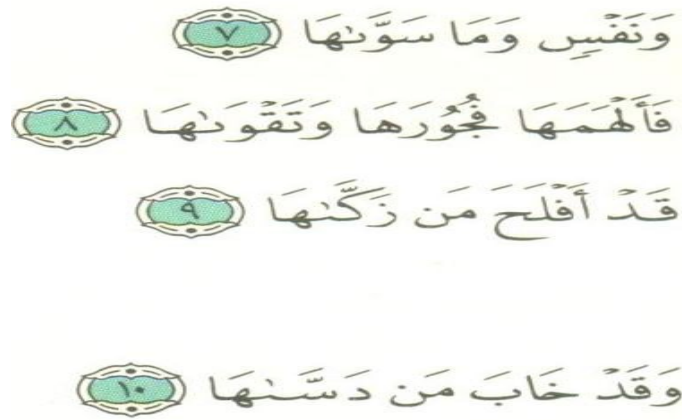 وَنَفْسٍ وَمَا سَوَّىٰهَا ٧
فَأَلْهَمَهَا فُجُورَهَا وَتَقْوَىٰهَا ٨
قَدْ أَفْلَحَ مَن زَكَّىٰهَا ٩
وَقَدْ خَابَ مَن دَسَّىٰهَا ١٠